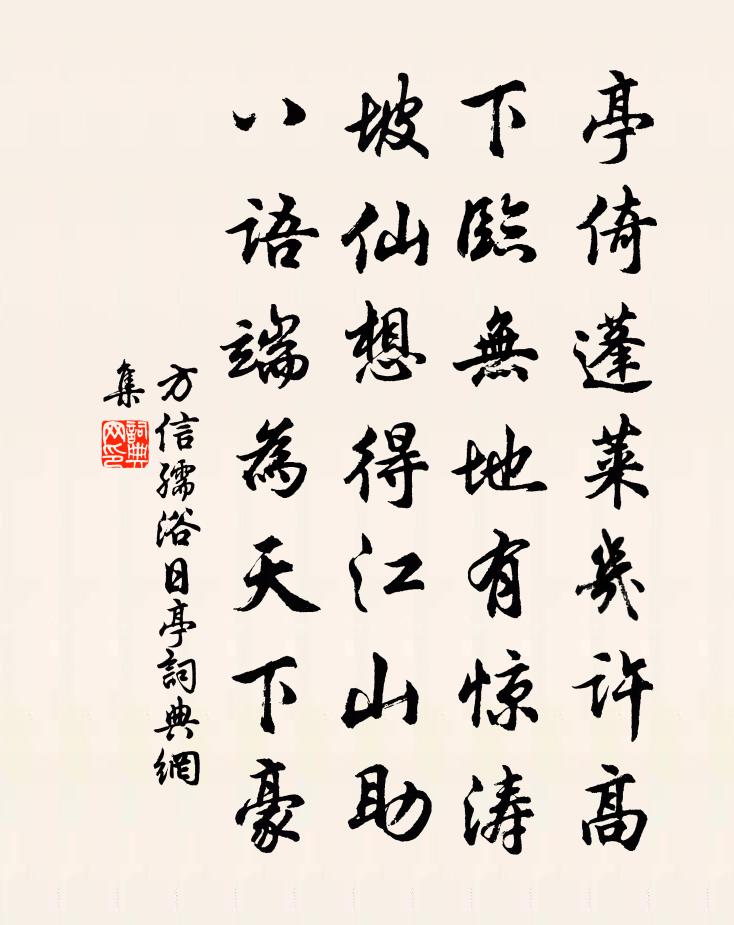 亭倚蓬莱幾許高
下臨無地有惊涛
坡仙想得江山助
八語端為天下豪
方信孺浴日亭詞典網
集
詞典
网印